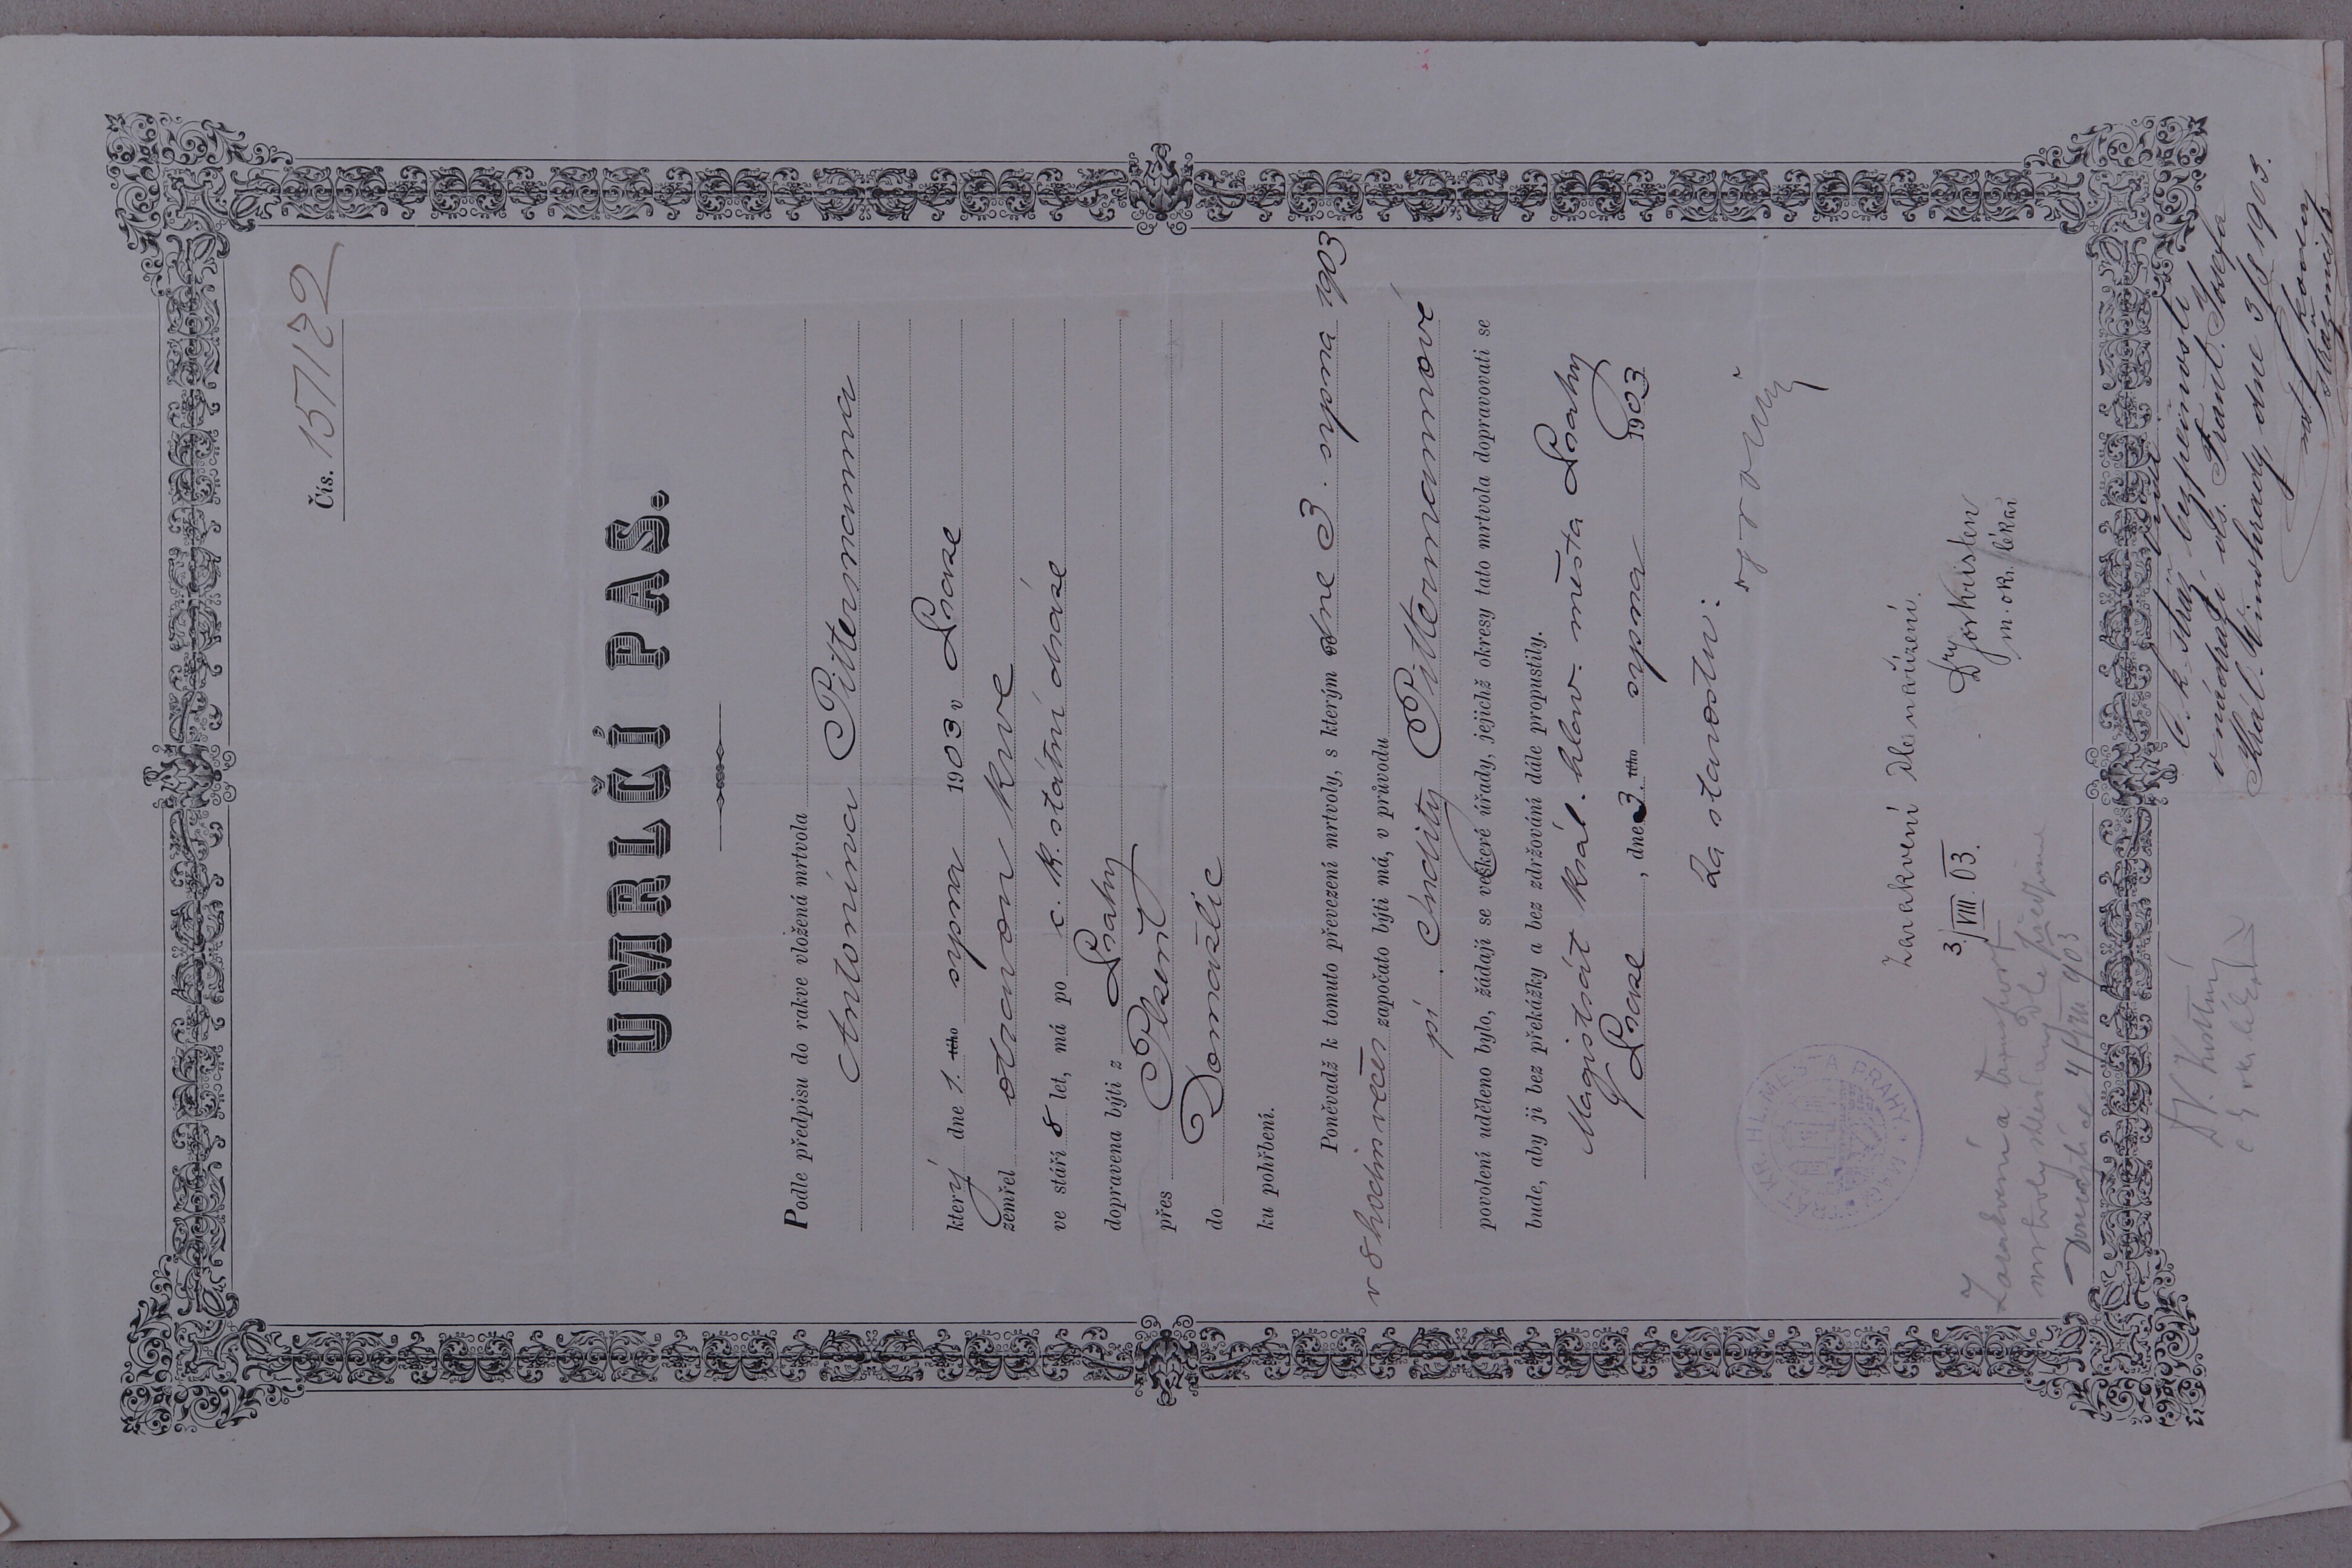 Čís. 15122
UMRLČÍ PAS.
Podle předpisu do rakve vložená mrtvola
Antonína Pittermanna
který dne 1. tého srpna 1903 v Praze
zemřel otravou krve
ve stáří 8 let, má po c. k. státní dráze
dopravena býti z Prahy
přes Plzeň
do Domažlic
ku pohřbení.
Poněvadž k tomuto převezení mrtvoly, s kterým dne 3. srpna 1903
v 8 hodin večer započato býti má, v průvodu
pí. Indity Pittermannové
povolení uděleno bylo, žádají se veškeré úřady, jejichž okresy tato mrtvola dopravovati se
bude, aby ji bez překážky a bez zdržování dále propustily.
Magistrát král. hlav. města Prahy
V Praze, dne 3. tého srpna 1903
Za starostu:
KR. HL. MĚSTA PRAHY
Zarakvení dle nařízení.
3./VIII. 03.
Dr. Kristen
m. ok. lékař
Zarakvení a transport
mrtvoly shledány dle předpisu
Domažlice 4/VIII 903
C. k. stráž bezpečnosti
v nádraží cís. Frant. Josefa
Král. Vinohrady, dne 3/8 1903.
strážmistr